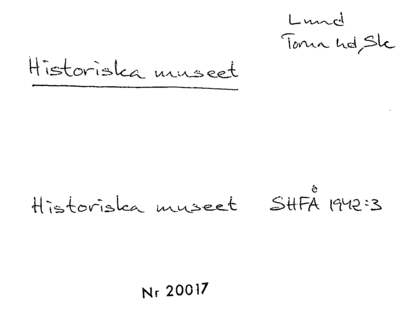 Lund
Torna hd, Sk
Historiska museet
Historiska museet SHFÅ 1942:3
Nr 20017